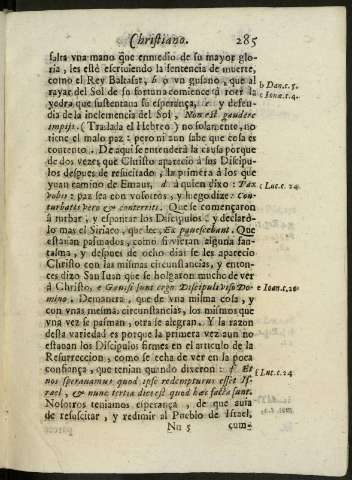 Christiano. 285
falta vna mano que enmedio de su mayor glo-
ria, les esté escriuiendo la sentencia de muerte,
como el Rey Baltasar, b ò vn gusano, que al
rayar del Sol de su fortuna comience à roer la
yedra que sustentaua su esperança, c y defen-
dia de la inclemencia del Sol, Non est gaudere
impijs. (Traslada el Hebreo) no solamente, no
tiene el malo paz: pero ni aun sabe que cosa es
contento. De aqui se entenderá la causa porque
de dos vezes que Christo apareciò a sus Discipu-
los despues de resucitado, la primera à los que
yuan camino de Emaus, d à quien dixo: Pax
vobis: paz sea con vosotros, y luego dize: Con-
turbati vero & conterriti. Que se començaron
à turbar, y espantar los Discipulos: y declarò-
lo mas el Siriaco, que lee, Expauescebant. Que
estauan pasmados, como si vieran alguna fan-
tasma, y despues de ocho dias se les apareciò
Christo con las mismas circunstancias, y enton-
ces dizo San Iuan que se holgaron mucho de ver
à Christo, e Gauisi sunt ergo Discipuli viso Do-
mino. Demanera, que de vna misma cosa, y
con vnas mesmas circunstancias, los mismos que
vna vez se pasman, otra se alegran. Y la razon
desta variedad es porque la primera vez aun no
estauan los Discipulos firmes en el articulo de la
Resurreccion, como se echa de ver en la poca
confiança, que tenian quando dixeron: f Et
nos sperauamus quod ipse redempturus esset Is-
rael, & nunc tertia dies est quod hæc facta sunt.
Nosotros teniamos esperança, de que auia
de resuscitar, y redimir al Pueblo de Israel,
Nn 5 cum-
b Dan.c.5.
c Ionæ.c.4.
d Luc.c. 24.
e Ioan.c.20
f Luc.c.24